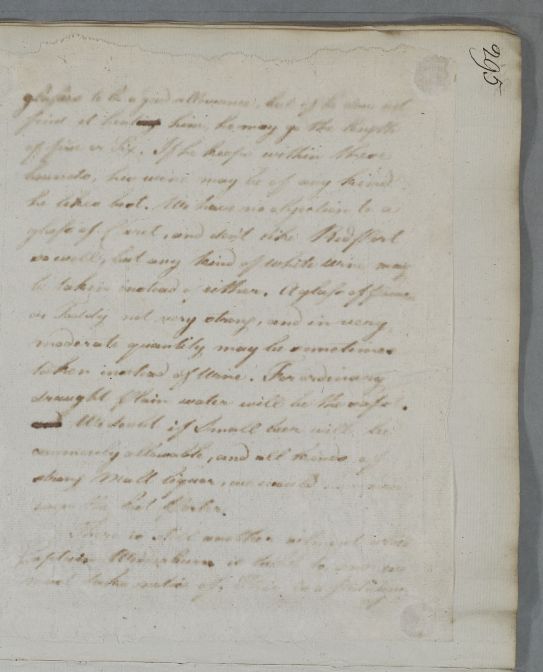 295
glasses to be a good allowance, but if he does not
find it heating him, he may go the length
of five or six. If he keeps within these
bounds, his wine may be of any kind
he likes best. We have no objection to a
glass of Claret, and don't like Red Port
so well, but any kind of white wine may
be taken instead of either. A glass of punch
or Toddy not very strong, and in very
moderate quantity, may be sometimes
taken instead of Wine. For ordinary
draught plain water will be the safest.
We doubt if Small beer will be
commonly allowable, and all kinds of
strong Malt liquor, we would
the best Porter.
There is still another ailment which
Captain is to
must take notice of. This is a